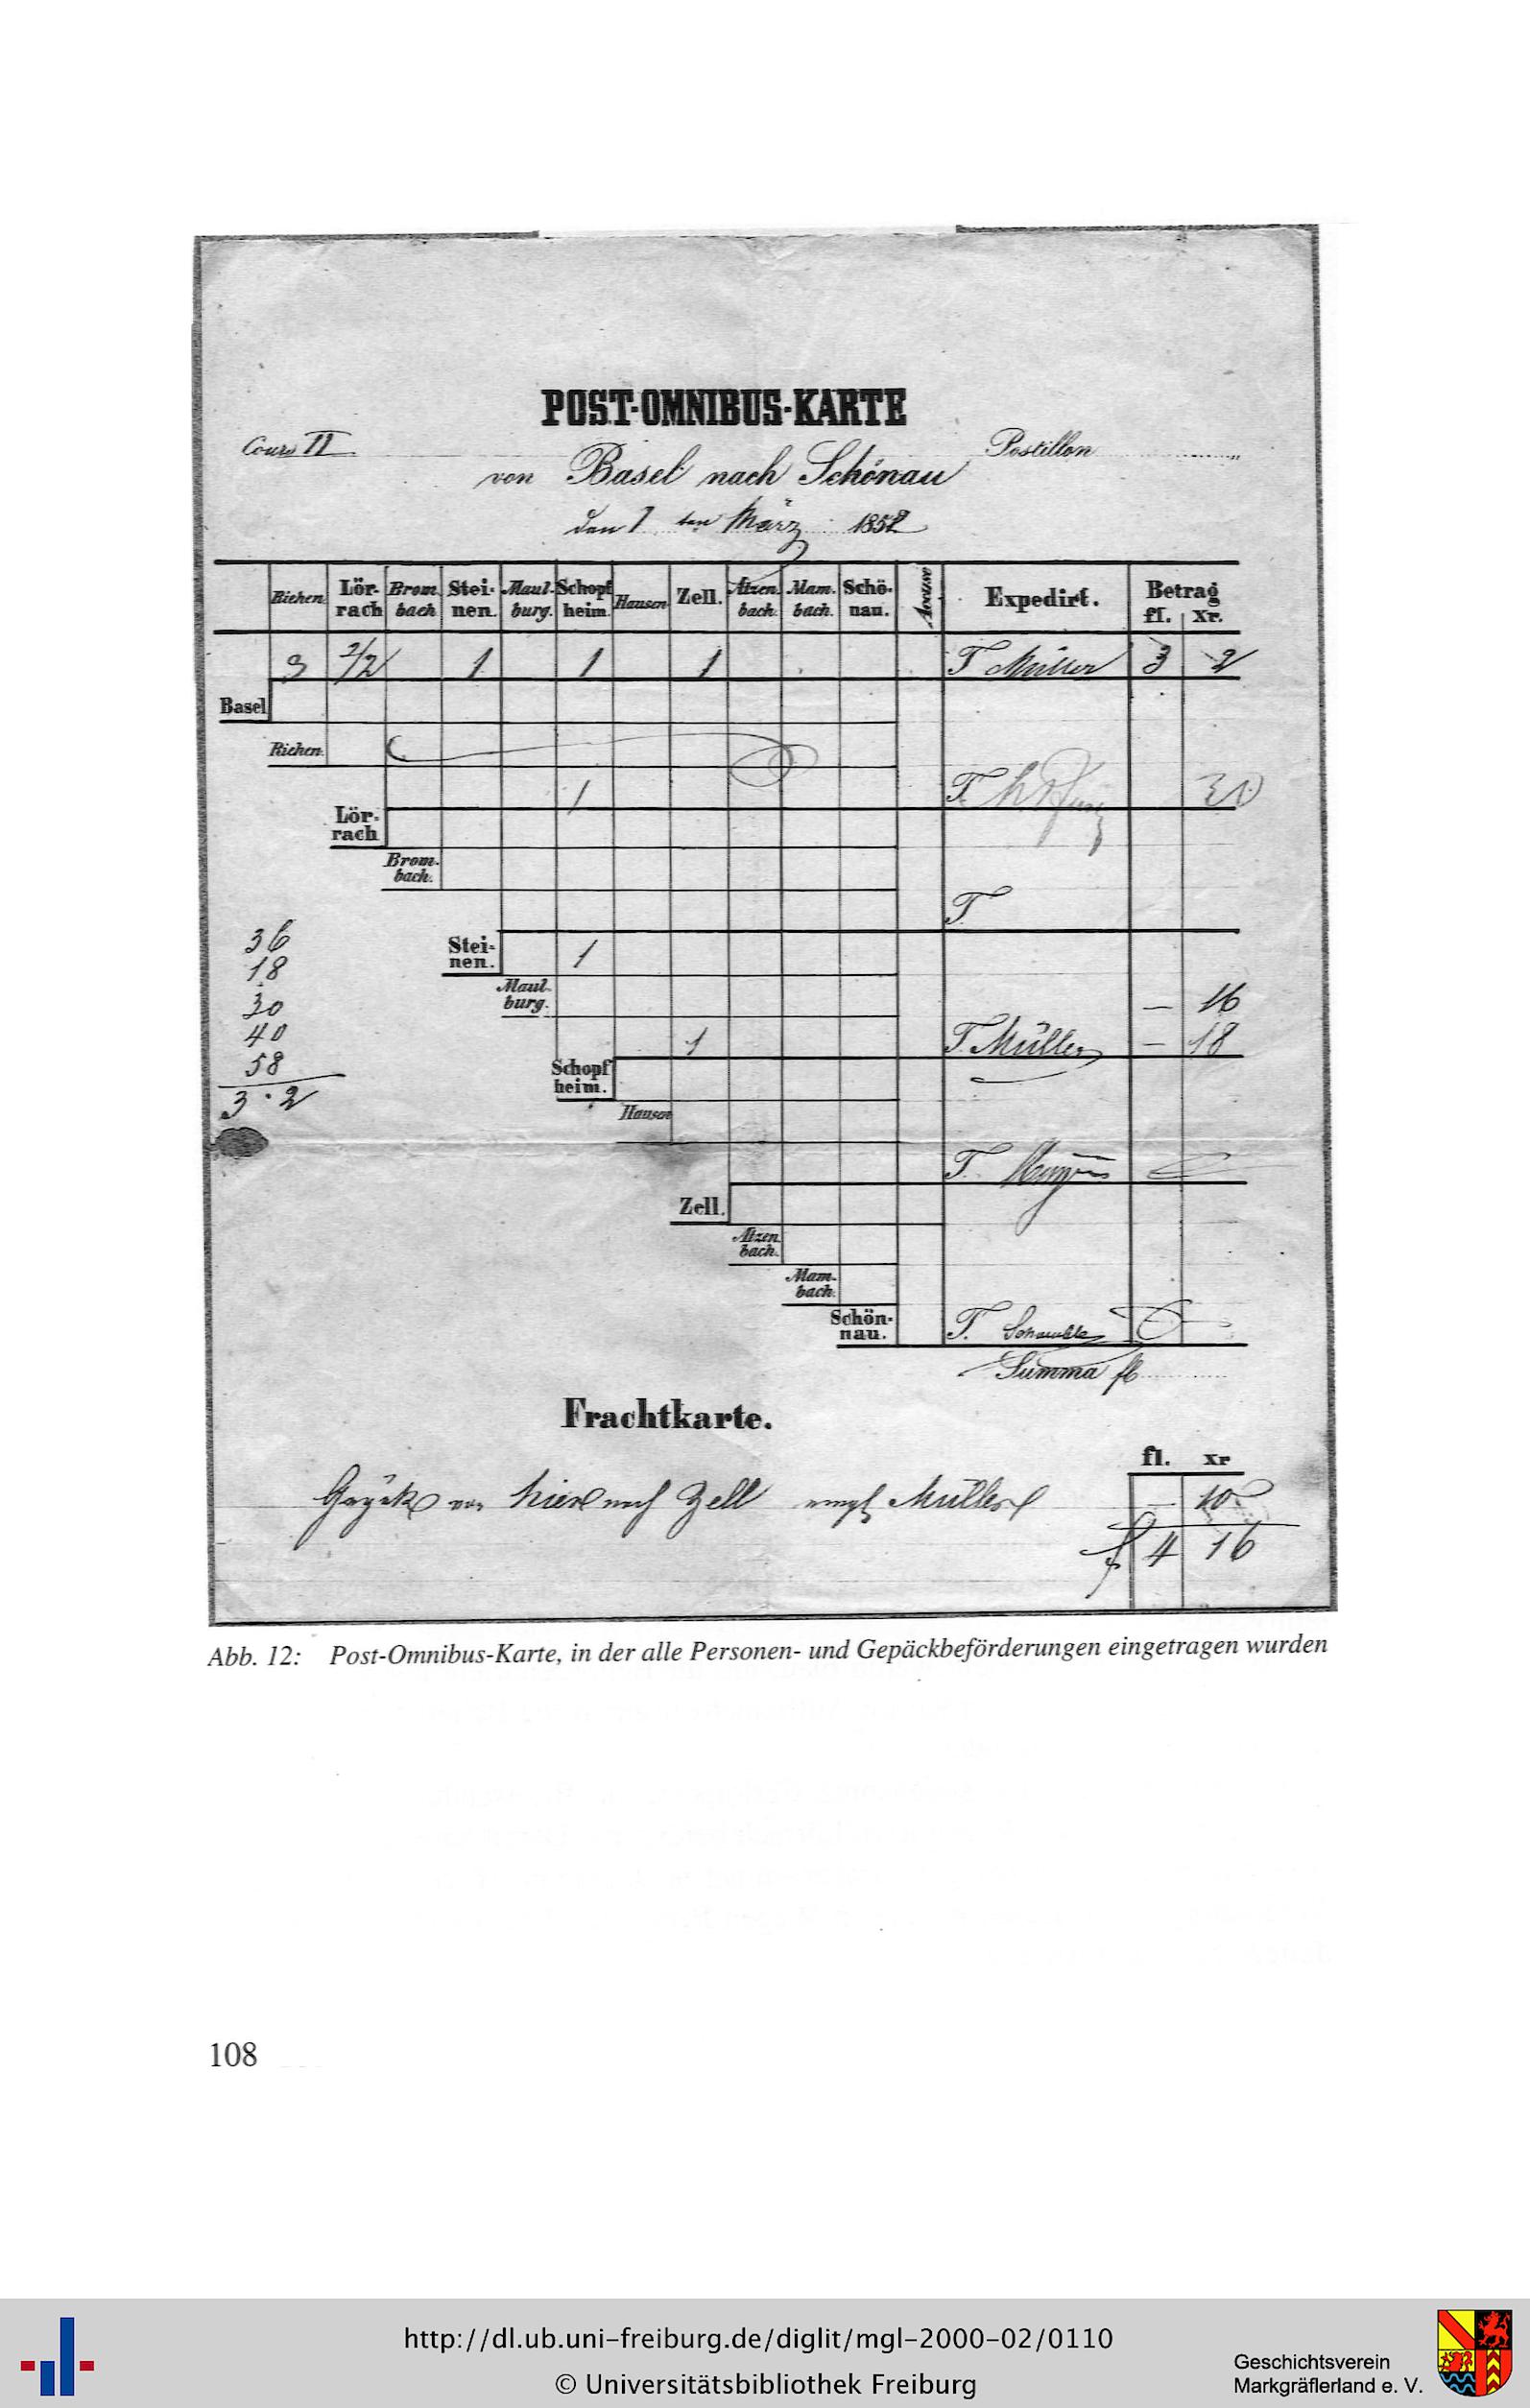 POST-OMNIBUS-KARTE
Cours II
Postillon
von Basel nach Schönau
den 7 ten März 1852
Riehen. Lör-rach Brom-bach Stei-nen. Maul-burg. Schopf heim. Hausen Zell. Atzen-bach. Mam-bach. Schö-nau. Accuse Expedirt. Betrag fl. Xr.
3 2/2 1 1 1 T Müller 3 2
Basel
Riehen.
1 T.
Lör-rach
Brom-bach.
T.
Stei-nen. 1
Maul-burg.
– 16
1 T. Müller – 18
Schopf heim.
Hausen
T.
Zell.
Atzen bach.
Mam-bach.
Schön-nau. T.
36
18
30
40
58
3 · 2
Summa fl
Frachtkarte.
fl. xr
hier nach Zell Müller – 10
f 4 16
Abb. 12: Post-Omnibus-Karte, in der alle Personen- und Gepäckbeförderungen eingetragen wurden
108
http://dl.ub.uni-freiburg.de/diglit/mgl-2000-02/0110
© Universitätsbibliothek Freiburg
Geschichtsverein
Markgräflerland e. V.